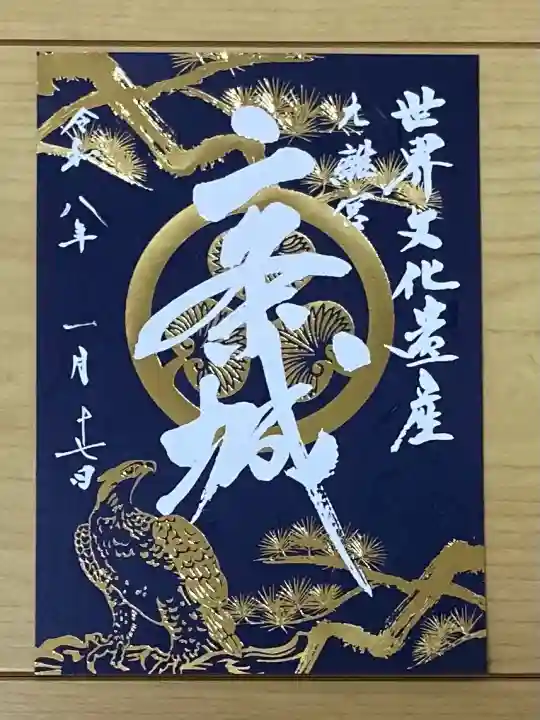 世界文化遺産
元離宮
二条城
令和八年 一月十七日